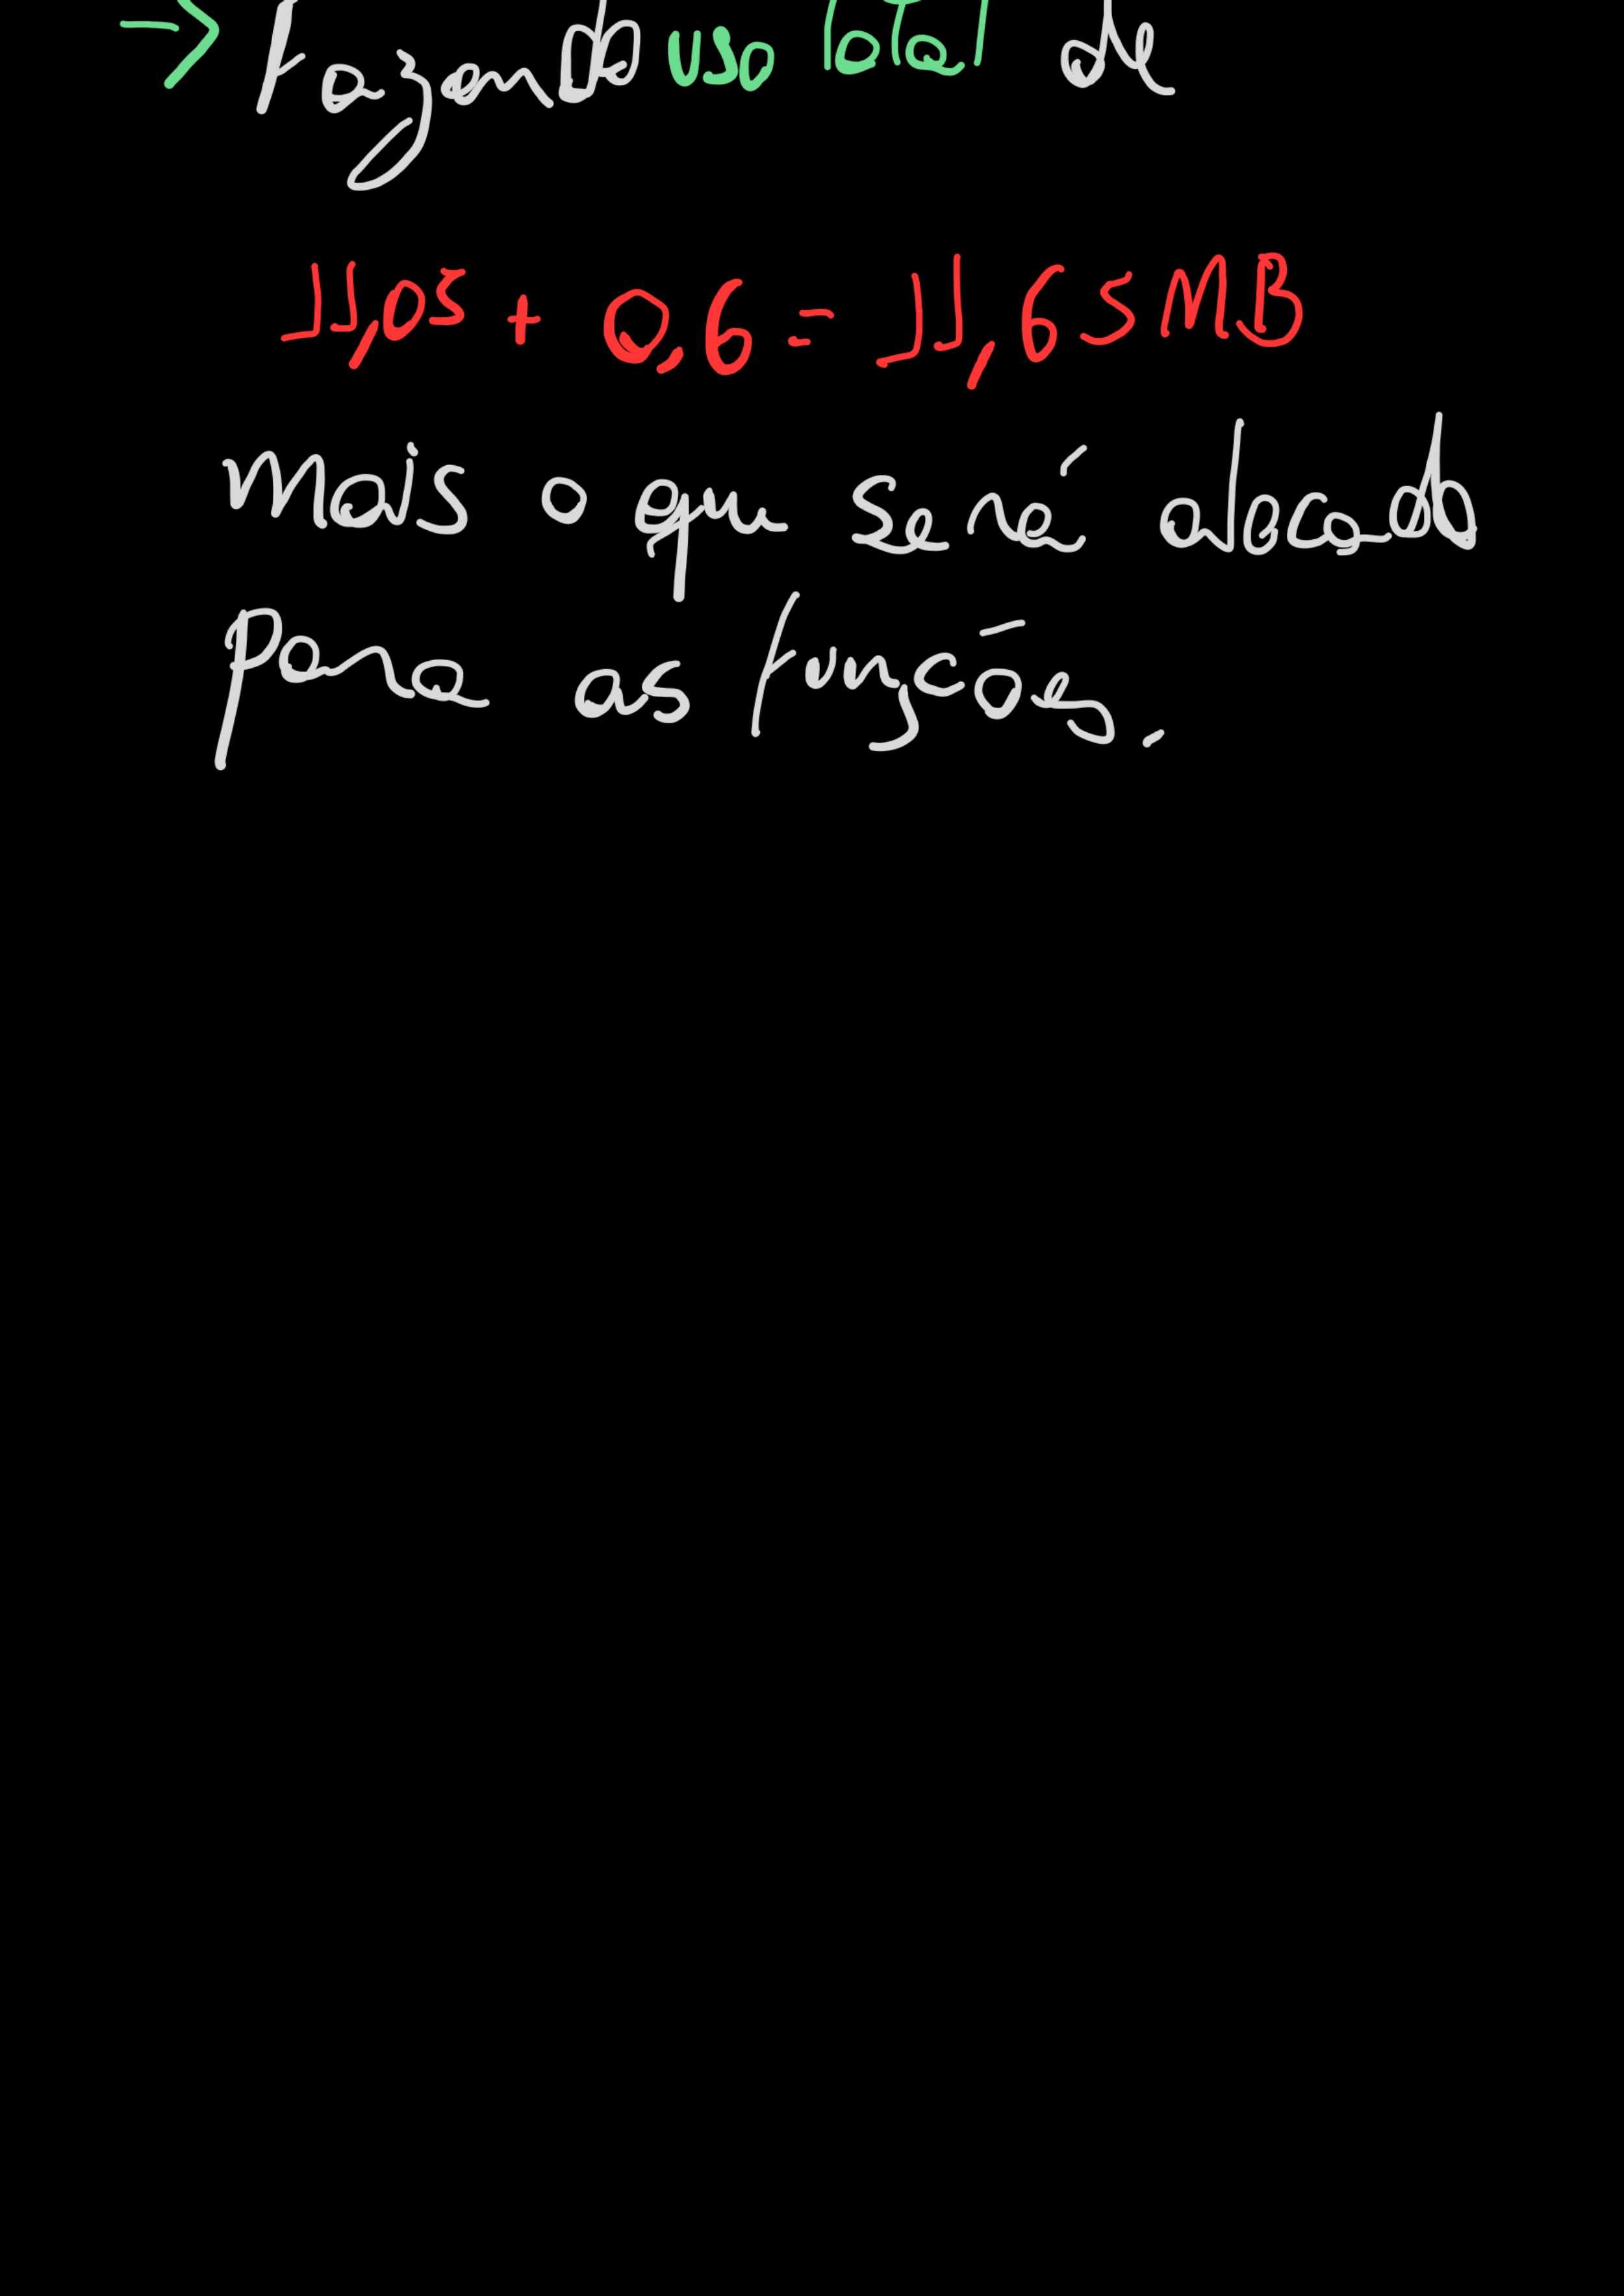 → Fazendo uso total de
11,05 + 0,6 = 11,65 MB
Mais o que será alocado
para as funções.